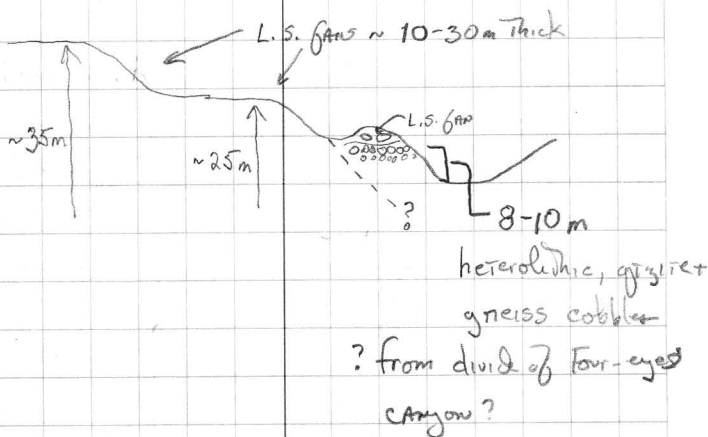 L.S. fans ~ 10-30m Thick
~35m
~25m
L.S. fan
?
8-10m
heterolithic, qtzite +
gneiss cobbles
? from divide of Four-eyes
canyon?